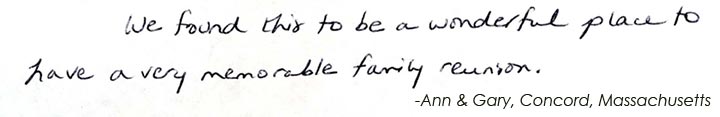 We found this to be a wonderful place to
have a very memorable family reunion.
-Ann & Gary, Concord, Massachusetts